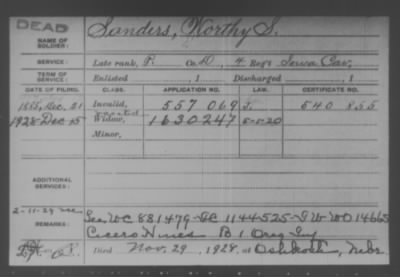 DEAD
Sanders, Worthy S.
NAME OF SOLDIER:
SERVICE: Late rank, P. Co. D, 4 Reg't Iowa Cav.
TERM OF SERVICE: Enlisted , 1 Discharged , 1
DATE OF FILING. CLASS. APPLICATION NO. LAW. CERTIFICATE NO.
1885, Dec. 21 Invalid, 557 069 J. 540 855
1928 Dec 15 Widow, 1630247 5-5-20
Minor,
ADDITIONAL SERVICES:
2-11-29
REMARKS: See WC 881479 1144525
Cicero Hines B 1 Oreg Inf
Died Nov. 29, 1928, at Oshkosh, Nebr